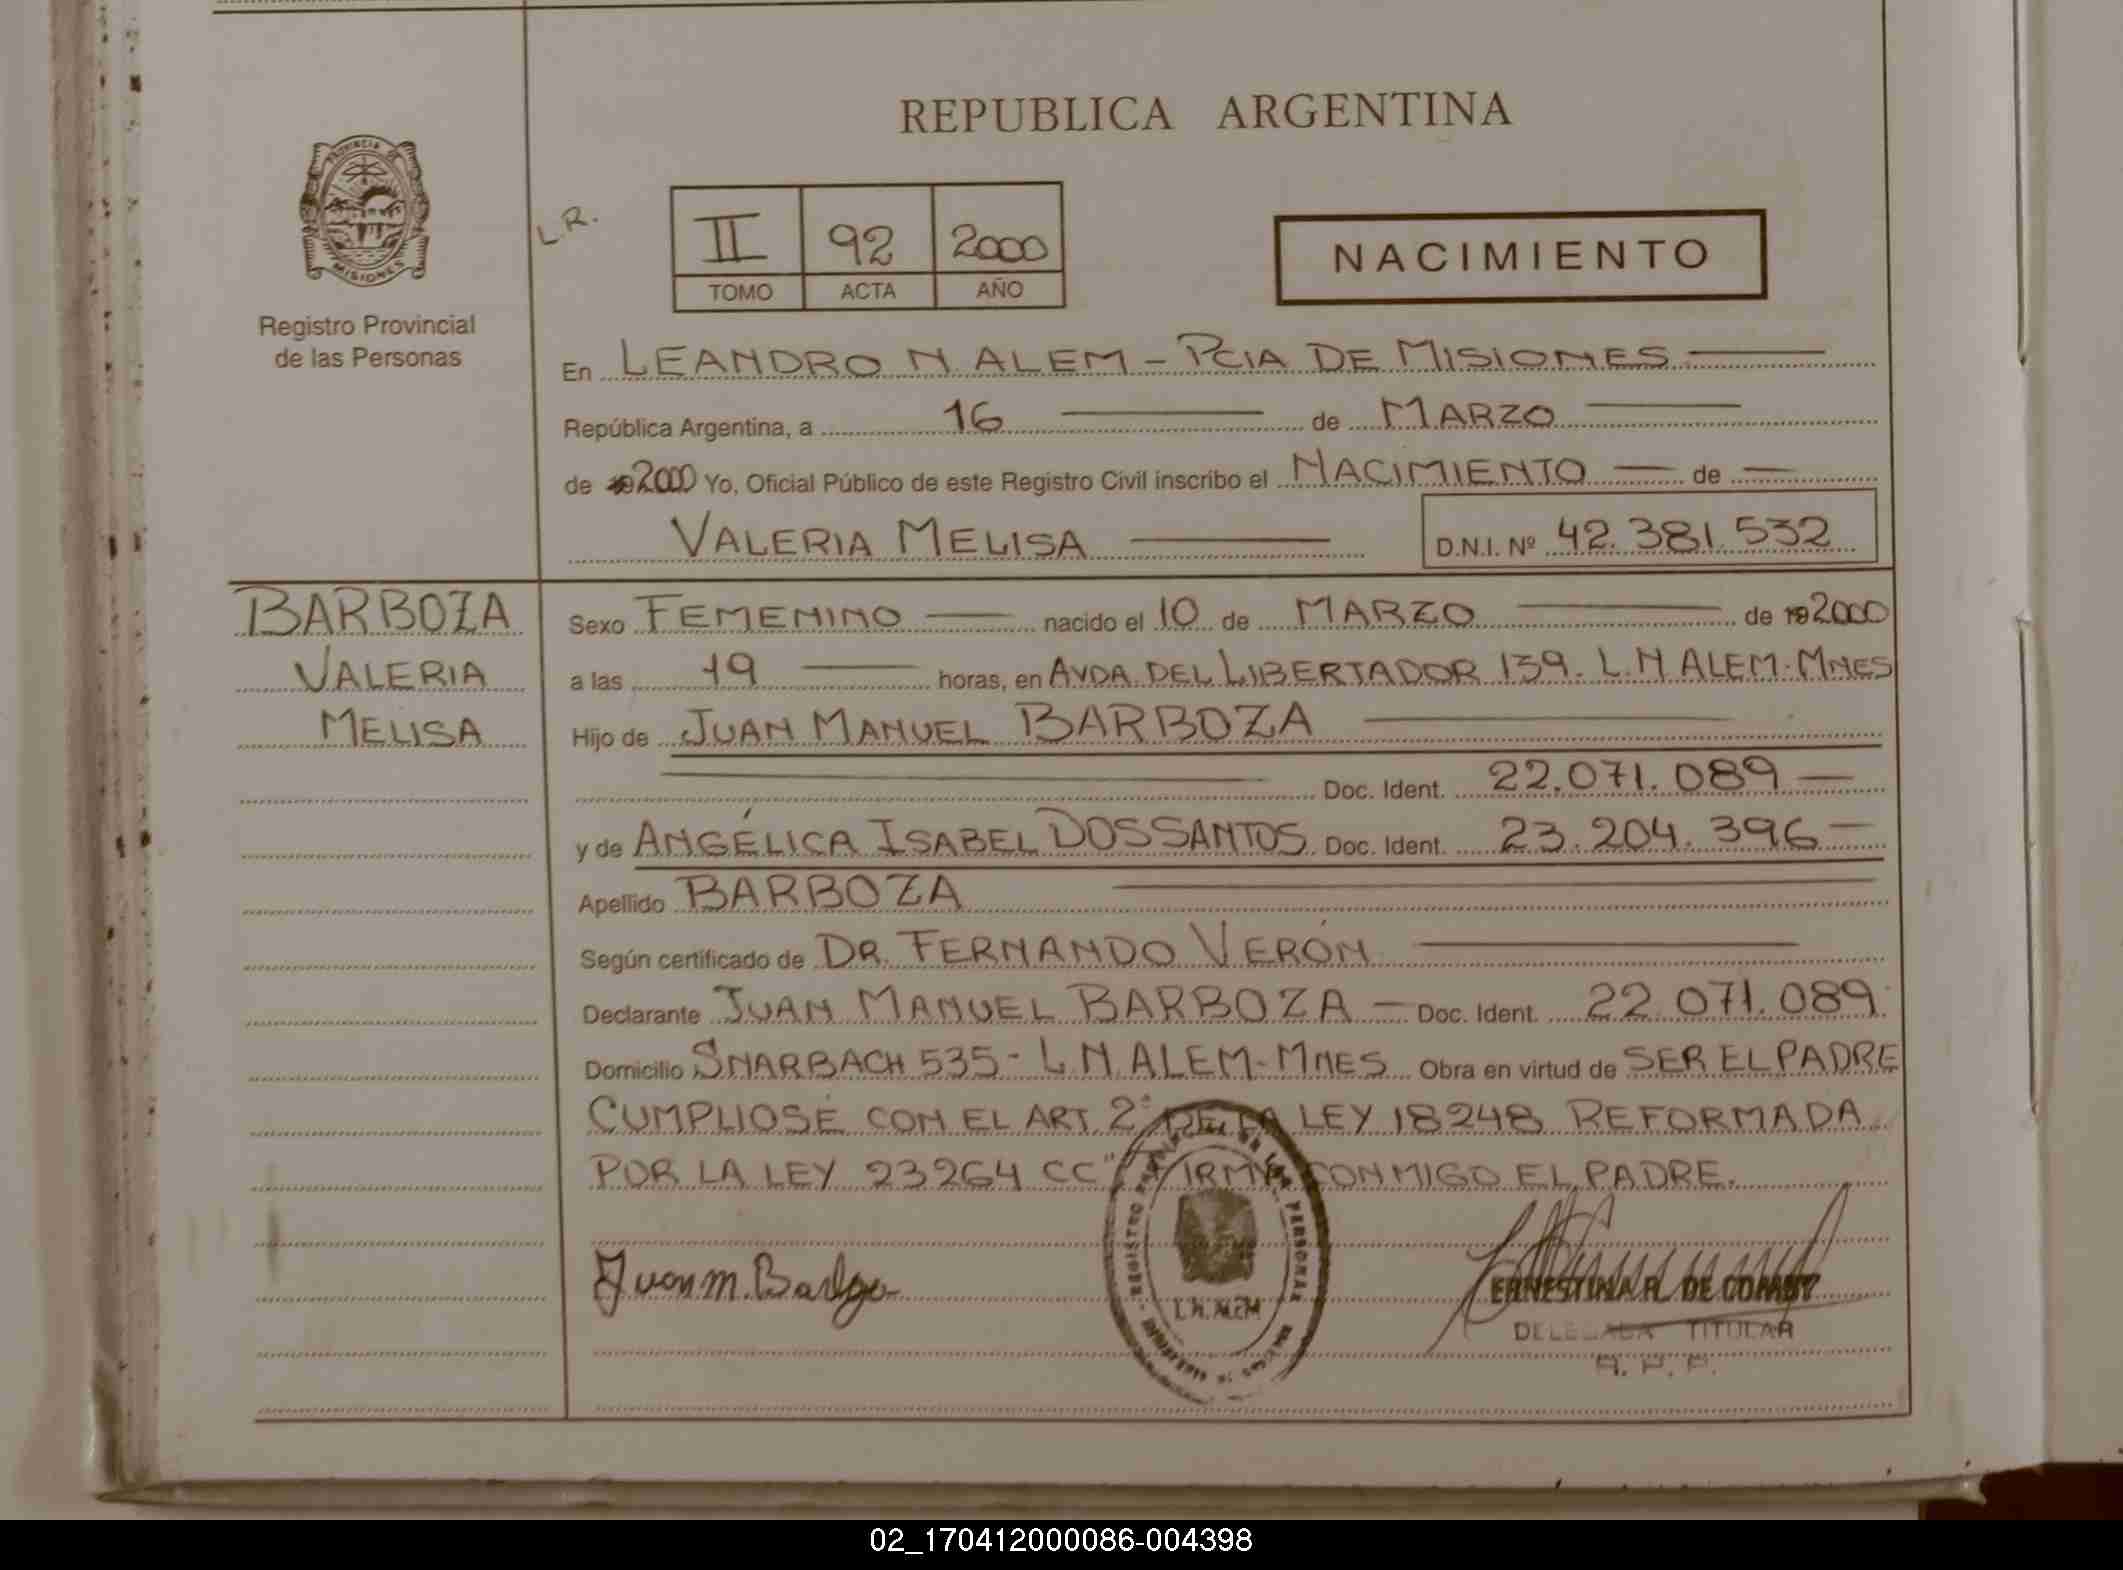 REPUBLICA ARGENTINA
PROVINCIA DE
MISIONES
Registro Provincial
de las Personas
L.R.
II 92 2000
TOMO ACTA AÑO
NACIMIENTO
En LEANDRO N ALEM - PCIA DE MISIONES
República Argentina, a 16 de MARZO
de 2000 Yo, Oficial Público de este Registro Civil inscribo el NACIMIENTO de
VALERIA MELISA D.N.I. Nº 42.381.532
BARBOZA
VALERIA
MELISA
Sexo FEMENINO nacido el 10 de MARZO de 192000
a las 19 horas, en AVDA. DEL LIBERTADOR 139. L.N ALEM-MNES
Hijo de JUAN MANUEL BARBOZA
Doc. Ident. 22.071.089
y de ANGÉLICA ISABEL DOSSANTOS Doc. Ident. 23.204.396
Apellido BARBOZA
Según certificado de DR. FERNANDO VERÓN
Declarante JUAN MANUEL BARBOZA - Doc. Ident. 22.071.089
Domicilio SNARBACH 535 - L.N. ALEM-MNES Obra en virtud de SER EL PADRE
CUMPLIOSE CON EL ART. 2º DE LA LEY 18248 REFORMADA
POR LA LEY 23264 CC" FIRMA CONMIGO EL PADRE.
Juan M. Barboza
L.N. ALEM
ERNESTINA R. DE
DELEGADA TITULAR
R. P. P.
02_170412000086-004398